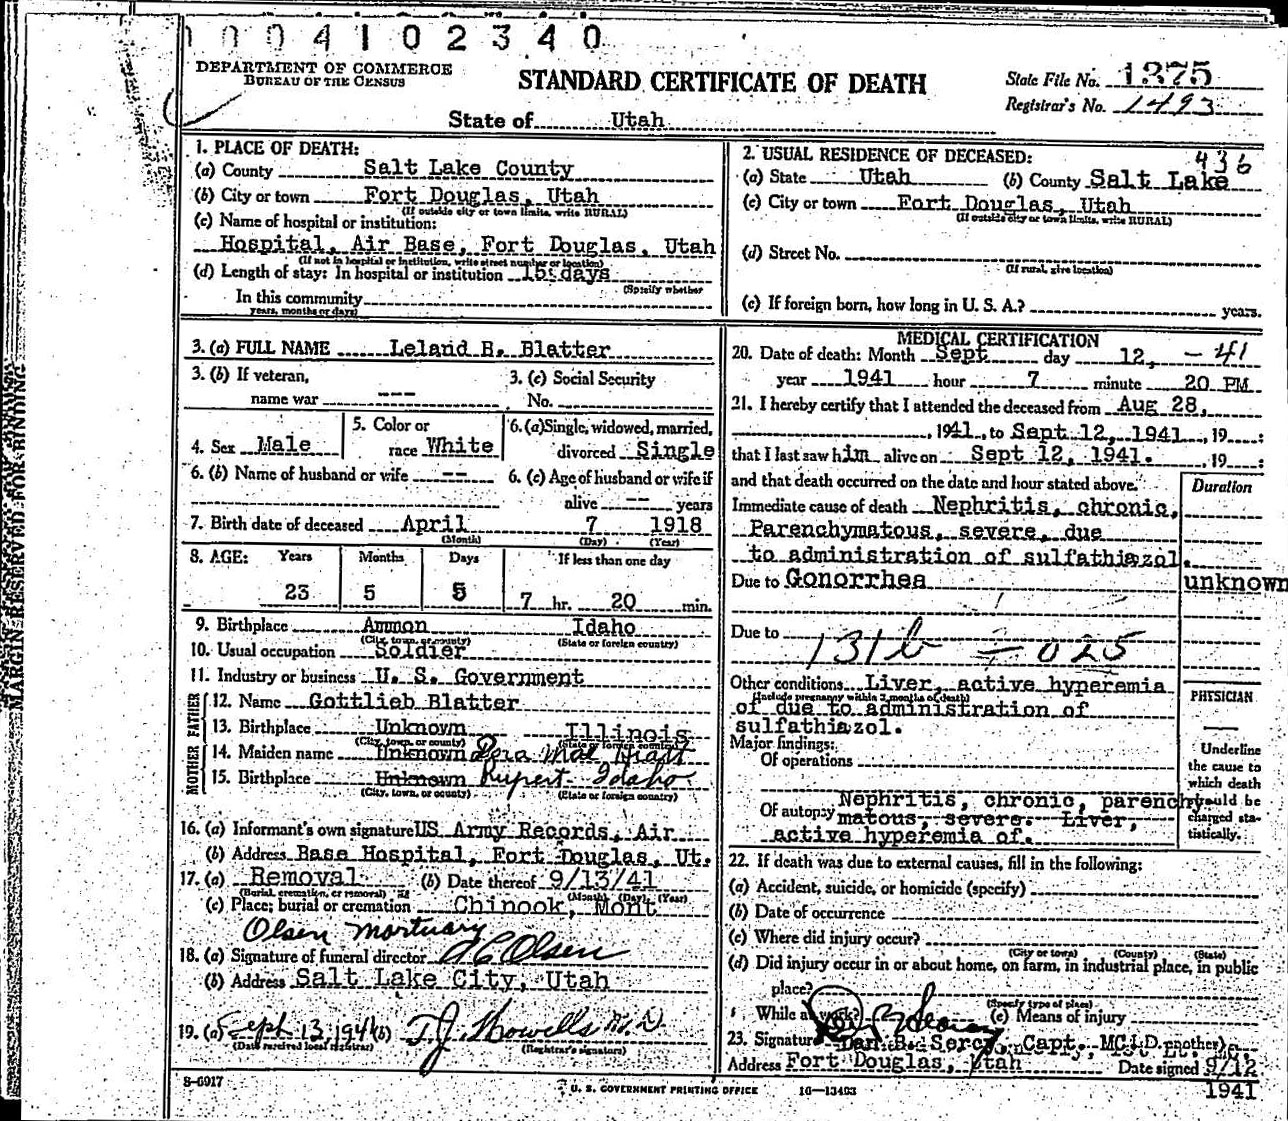 0004102340
DEPARTMENT OF COMMERCE
BUREAU OF THE CENSUS
STANDARD CERTIFICATE OF DEATH
State File No. 1375
Registrar's No. 1493
State of Utah
436
1. PLACE OF DEATH:
(a) County Salt Lake County
(b) City or town Fort Douglas, Utah
(If outside city or town limits, write RURAL)
(c) Name of hospital or institution:
Hospital, Air Base, Fort Douglas, Utah
(If not in hospital or institution, write street number or location)
(d) Length of stay: In hospital or institution 15 days
(Specify whether
In this community
years, months or days)
2. USUAL RESIDENCE OF DECEASED:
(a) State Utah (b) County Salt Lake
(c) City or town Fort Douglas, Utah
(If outside city or town limits, write RURAL)
(d) Street No.
(If rural, give location)
(e) If foreign born, how long in U. S. A.? years.
3. (a) FULL NAME Leland R. Blatter
3. (b) If veteran, name war ---
3. (c) Social Security No.
4. Sex Male
5. Color or race White
6. (a) Single, widowed, married, divorced Single
6. (b) Name of husband or wife --
6. (c) Age of husband or wife if alive -- years
7. Birth date of deceased April 7 1918
(Month) (Day) (Year)
8. AGE: Years Months Days If less than one day
23 5 5 7 hr. 20 min.
9. Birthplace Ammon Idaho
(City, town, or county) (State or foreign country)
10. Usual occupation Soldier
11. Industry or business U. S. Government
FATHER
12. Name Gottlieb Blatter
13. Birthplace Unknown Illinois
(City, town, or county) (State or foreign country)
MOTHER
14. Maiden name Unknown Dora Mae
15. Birthplace Unknown Rupert Idaho
(City, town, or county) (State or foreign country)
16. (a) Informant's own signature US Army Records, Air
(b) Address Base Hospital, Fort Douglas, Ut.
17. (a) Removal (b) Date thereof 9/13/41
(Burial, cremation, or removal) (Month) (Day) (Year)
(c) Place; burial or cremation Chinook, Mont
Olsen Mortuary
18. (a) Signature of funeral director A C Olsen
(b) Address Salt Lake City, Utah
19. (a) Sept 13, 1941 (b) T. J. Howells M.D.
(Date received local registrar) (Registrar's signature)
MEDICAL CERTIFICATION
20. Date of death: Month Sept day 12, - 41
year 1941 hour 7 minute 20 PM
21. I hereby certify that I attended the deceased from Aug 28,
, 1941, to Sept 12, 1941 , 19 ;
that I last saw him alive on Sept 12, 1941. , 19 ;
and that death occurred on the date and hour stated above.
Duration
Immediate cause of death Nephritis, chronic,
Parenchymatous, severe, due
to administration of sulfathiazol.
Due to Gonorrhea unknown
Due to
131b ÷ 025
Other conditions Liver, active hyperemia
(Include pregnancy within 3 months of death)
of due to administration of
sulfathiazol.
Major findings:
Of operations
Of autopsy Nephritis, chronic, parenchy-
matous, severe. Liver,
active hyperemia of.
PHYSICIAN
Underline
the cause to
which death
should be
charged sta-
tistically.
22. If death was due to external causes, fill in the following:
(a) Accident, suicide, or homicide (specify)
(b) Date of occurrence
(c) Where did injury occur?
(City or town) (County) (State)
(d) Did injury occur in or about home, on farm, in industrial place, in public
place?
(Specify type of place)
While at work? (e) Means of injury
23. Signature Dan B. Searcy, Capt. MC
Address Fort Douglas, Utah Date signed 9/12
1941
S-6917
U. S. GOVERNMENT PRINTING OFFICE 16-13493
MARGIN RESERVED FOR BINDING